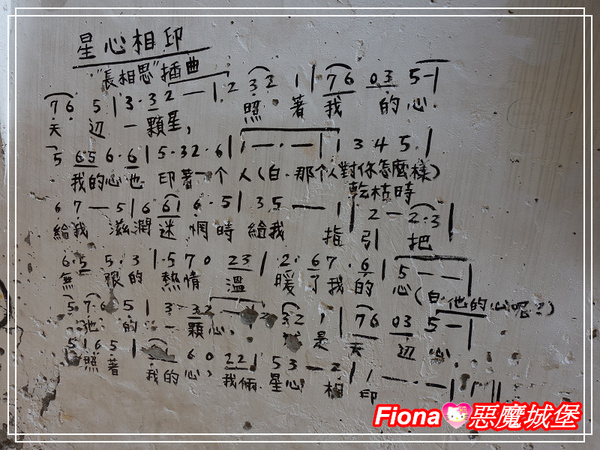 星心相印
"長相思"插曲
7 6 5 | 3 · 3 2 — | · 2 3 2 1 | 7 6 0 3 5 — |
天 边 一顆星, 照 著 我 的 心.
5 6 5 6 · 6 | 5 · 3 2 · 6 | i — · — | 1 3 4 5 · |
我的心也 印著一个 人(白.那个人對你怎麼樣)
乾枯時
6 7 — 5 | 6 6 i 6 · 5 | 3 5 — — 1 | 2 — 2 · 3 |
給我 滋潤迷 惘時給我 指 引 把
6 · 5 5 · 3 | · 5 7 0 2 3 | 2 · 6 7 · 6 | 5 — — |
無 限的 熱情 溫 暖了我的 心(白:他的心呢?)
5 · 7 · 6 5 | 3 · 3 2 — · 3 2 1 | 7 6 0 3 5 — |
他 的 一顆心, 是 天 边 心
5 1 6 5 | 6 0 2 2 | 5 3 — 2 | 1 — · — |
照著 我的心, 我倆 星心 相 印
Fiona惡魔城堡